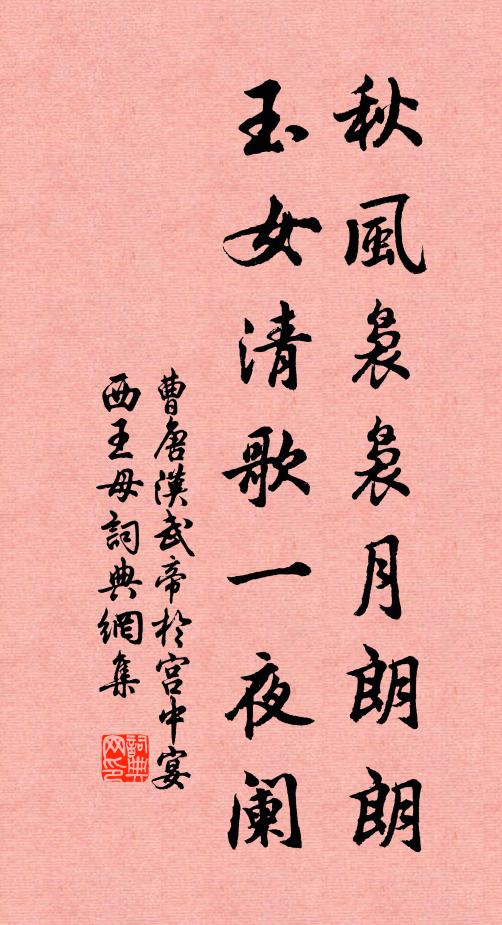 秋風裊裊月朗朗
玉女清歌一夜阑
曹唐漢武帝於宫中宴
西王母詞典網集
詞典
网印